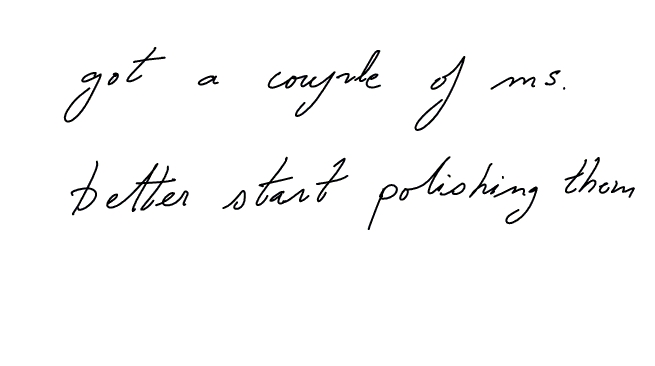 got a couple of ms.
better start polishing them